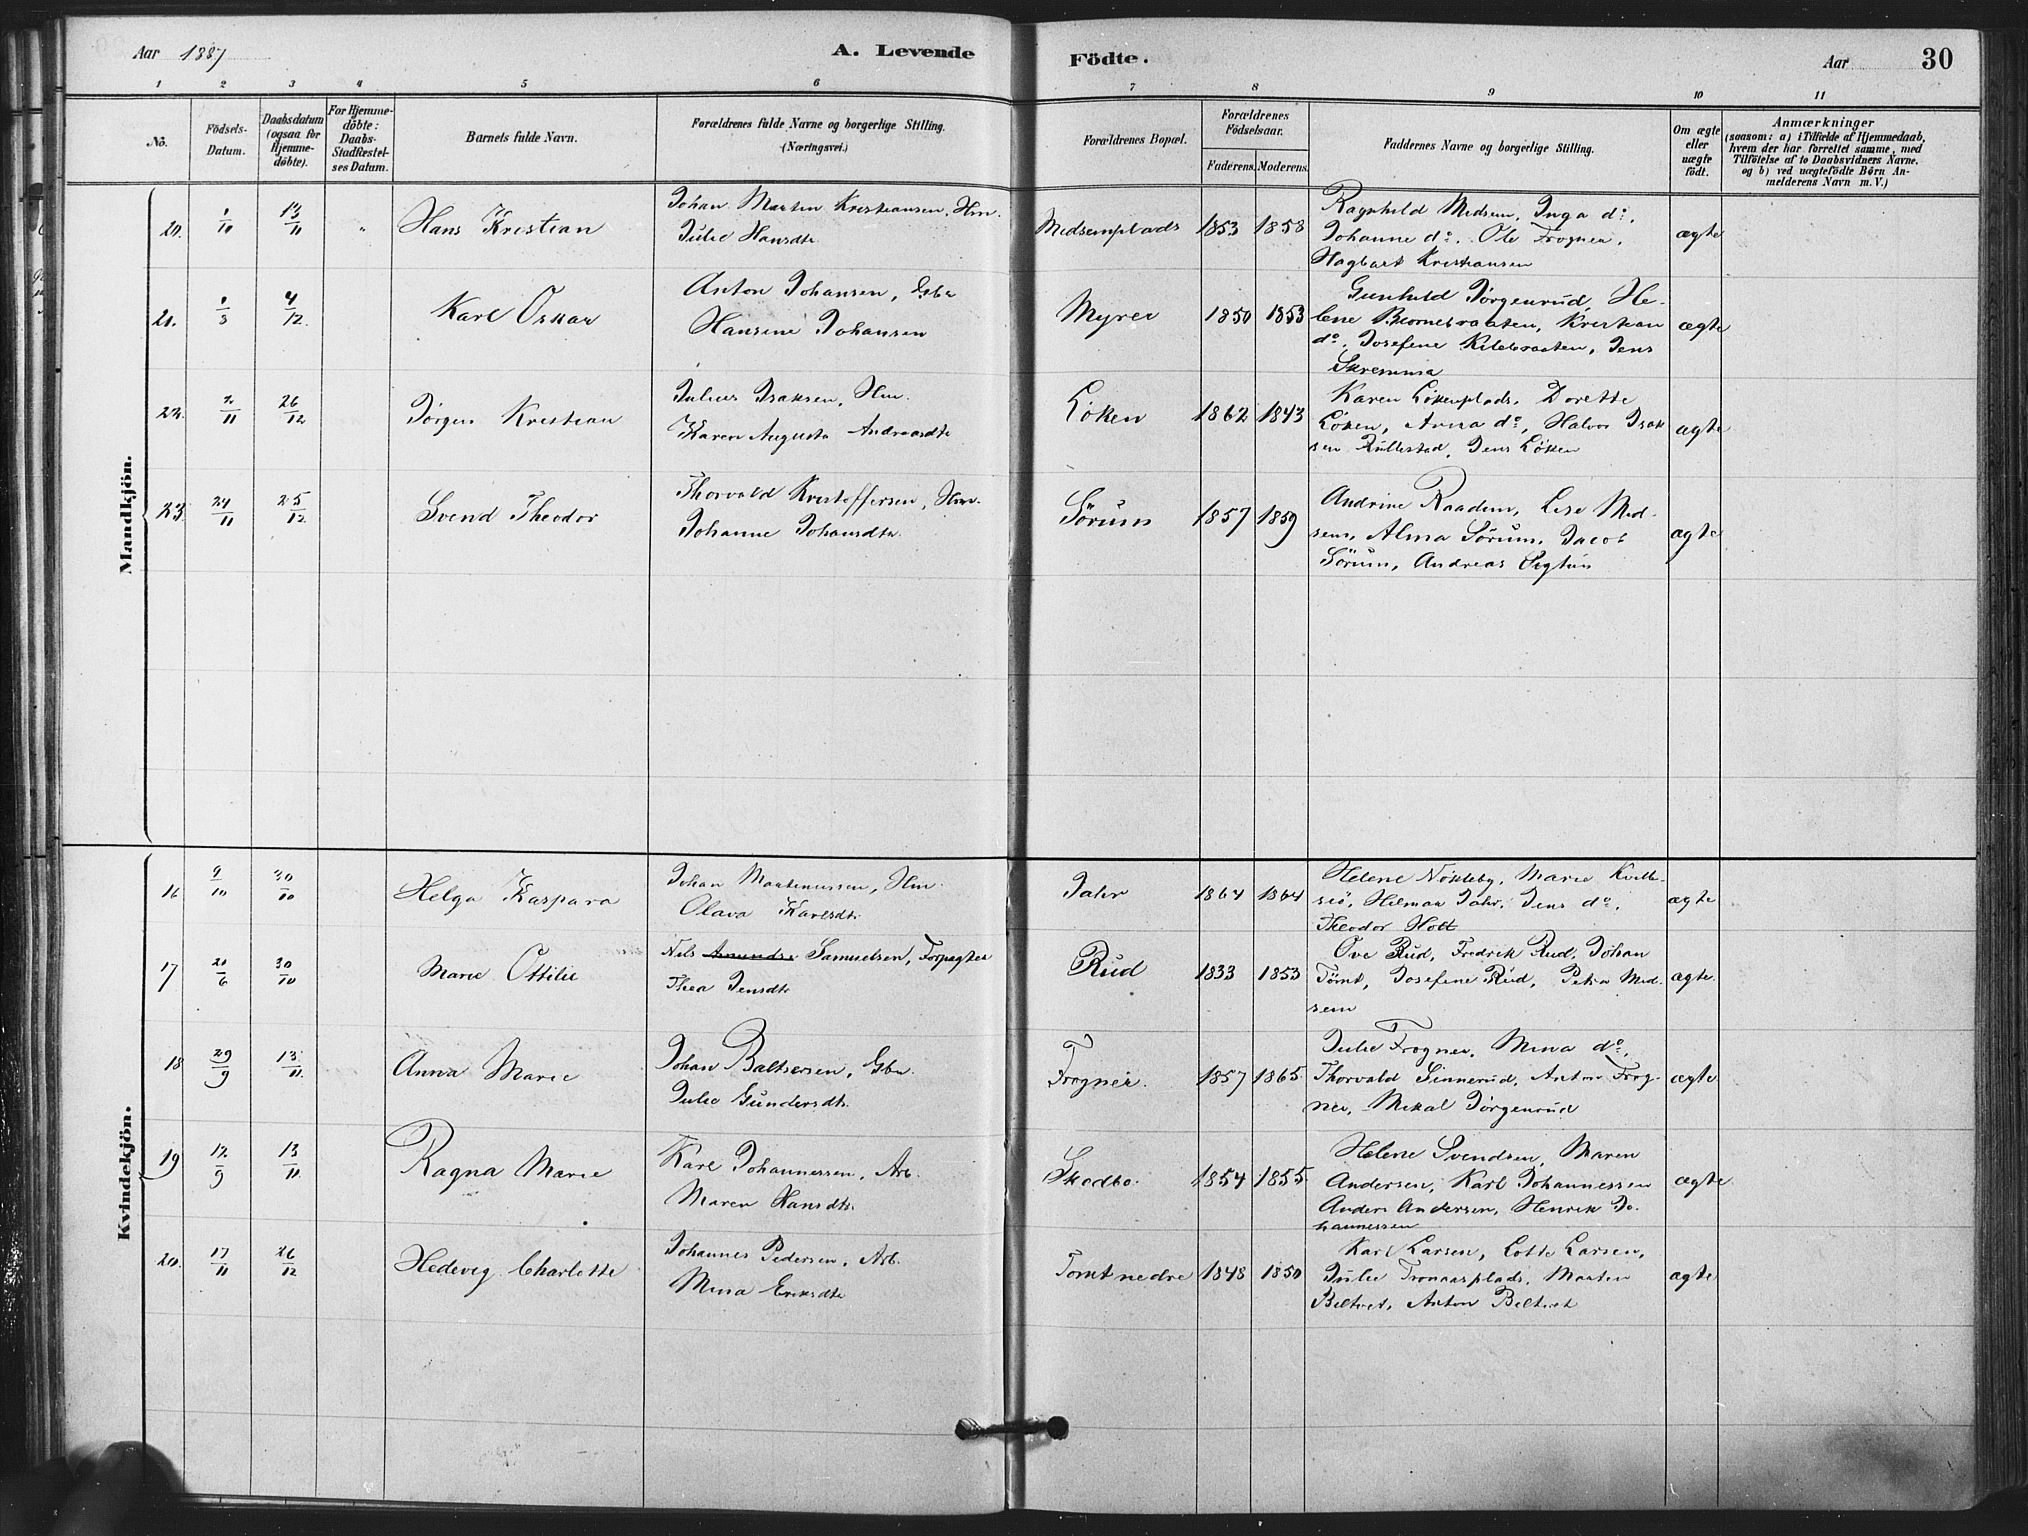 Aar 1887
A. Levende
Födte.
Aar
30
1 2 3 4 5 6 7 8 9 10 11
No.
Födsels-
Datum.
Daabsdatum
(ogsaa for
Hjemme-
döbte).
For Hjemme-
döbte:
Daabs-
Stadfæstel-
ses Datum.
Barnets fulde Navn.
Forældrenes fulde Navne og borgerlige Stilling.
(Næringsvei.)
Forældrenes Bopæl.
Forældrenes
Födselsaar.
Faderens.
Moderens.
Faddernes Navne og borgerlige Stilling.
Om ægte
eller
uægte
födt.
Anmærkninger
(saasom: a) i Tilfælde af Hjemmedaab,
hvem der har forrettet samme, med
Tilföielse af to Daabsvidners Navne.
og b) ved uægtefödte Börn An-
melderens Navn m. V.)
Mandkjön.
20. 1/10 13/11 " Hans Kristian
Johan Martin Kristiansen, Hm.
Julie Hansdtr
Medsemplads 1853 1858
Ragnhild Medsem, Inga do,
Johanne do. Ole Frogner,
Hagbart Kristiansen
ægte
21. 1/3 4/12 Karl Oskar
Anton Johansen, Gbr
Hansine Johansen
Myrer 1850 1853
Gunhild Jörgenrud, He-
lene Bjornebraaten, Kristian
do, Josefine Kilebraaten, Jens
Skremma
ægte
22. 2/11 26/12 Jörgen Kristian
Julius Isaksen, Hm.
Karen Augusta Andreasdtr
Löken 1862 1843
Karen Lökenplads, Dorette
Löken, Anna do, Halvor Isak
sen Kullestad, Jens Löken
ægte
23. 24/11 25/12 Svend Theodor
Thorvald Kristoffersen, Hm.
Johanne Johansdtr
Sörum 1857 1859
Andrine Raadem, Lise Med-
sem, Alma Sörum, Jacob
Sörum, Andreas Sigtun
ægte
Kvindekjön.
16 9/10 30/10 Helga Kaspara
Johan Martinussen, Hm.
Olava Karlsdtr
Jahr 1864 1864
Helene Nökleby, Marie Kvitte-
siö, Hilmar Jahr, Jens do,
Theodor Holt
ægte
17 21/6 30/10 Marie Ottilie
Nils Amundse Samuelsen, Forpagter
Thea Jensdtr
Rud 1833 1853
Ove Rud, Fredrik Rud, Johan
Tömt, Josefine Rud, Petra Med-
sem
ægte
18 29/9 13/11 Anna Marie
Johan Baltsersen, Gbr.
Julie Gundersdtr
Frogner. 1857 1865
Julie Frogner, Mina do,
Thorvald Sinnerud, Anton Frog-
ner, Mikal Jörgenrud
ægte
19 12/9 13/11 Ragna Marie
Karl Johannessen, Arb.
Maren Hansdtr
Skodbo. 1854 1855
Helene Svendsen, Maren
Andersen, Karl Johannessen
Anders Andersen, Henrik Jo-
hannessen
ægte
20. 17/11 26/12 Hedevig Charlotte
Johannes Pedersen, Arb.
Mina Eriksdtr
Tomt nedre 1848 1850
Karl Larsen, Lotte Larsen,
Julie Tronaasplads, Marten
Biltvet, Anton Biltvet
ægte